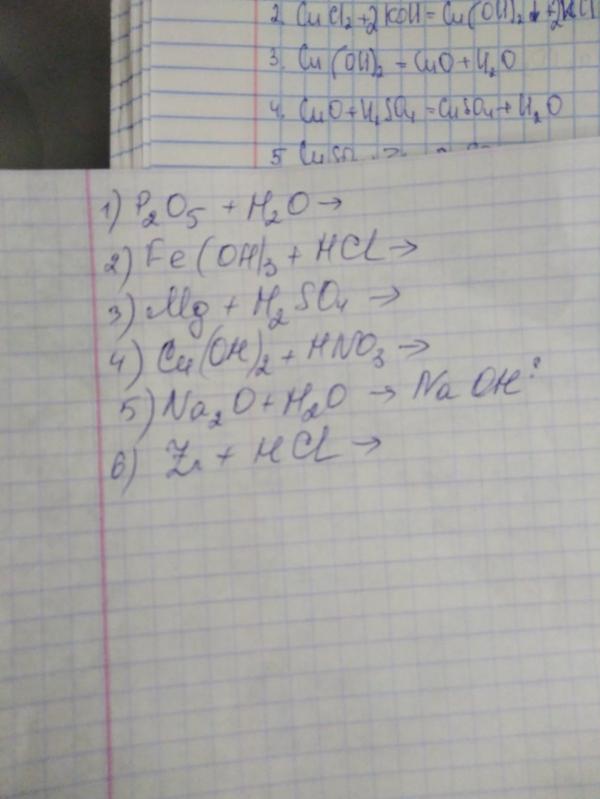 2. CuCl₂+2KOH=Cu(OH)₂↓+2KCl
3. Cu(OH)₂=CuO+H₂O
4. CuO+H₂SO₄=CuSO₄+H₂O
5
1) P₂O₅ + H₂O →
2) Fe(OH)₃ + HCl →
3) Mg + H₂SO₄ →
4) Cu(OH)₂ + HNO₃ →
5) Na₂O + H₂O → NaOH?
6) Zn + HCl →